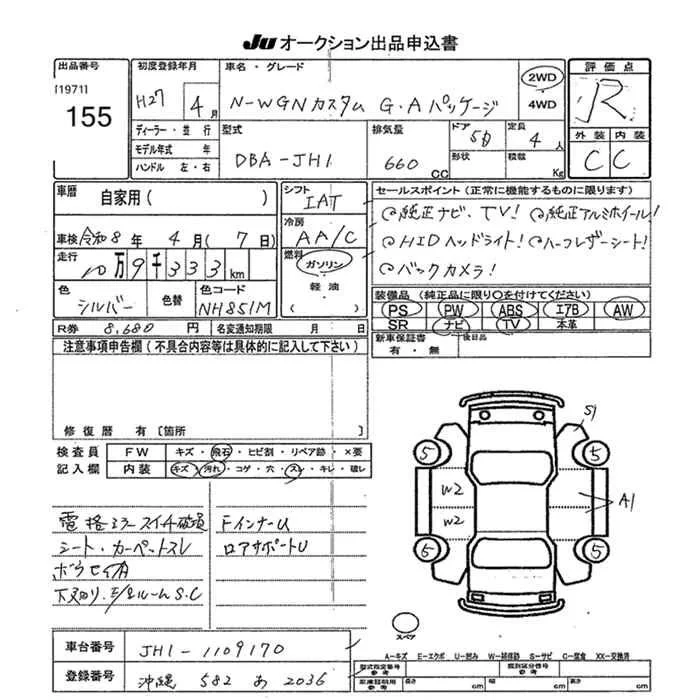 JU オークション出品申込書
出品番号
[1971]
155
初度登録年月
H27 4月
車名・グレード
N-WGNカスタム G・Aパッケージ
2WD
4WD
評価点
R
外装 内装
C C
ディーラー・並行
モデル年式 年
ハンドル 左・右
型式
DBA-JH1
排気量
660 CC
ドア
5D
形状
定員
4人
積載
Kg
車暦
自家用( )
車検 令和8年 4月(7日)
走行
10万9千333km
色
シルバー
色替
色コード
NH851M
R券 8,680円
名変通知期限 月 日
シフト
IAT
冷房
AA/C
燃料
ガソリン
軽油
( )
セールスポイント(正常に機能するものに限ります)
◎純正ナビ、TV! ◎純正アルミホイール!
◎HIDヘッドライト! ◎ハーフレザーシート!
◎バックカメラ!
装備品(純正品に限り○を付けてください)
PS PW ABS エアB AW
SR ナビ TV 本革
新車保証書
有・無
後日品
注意事項申告欄(不具合内容等は具体的に記入して下さい)
修復暦 有〔箇所 〕
検査員
記入欄
FW キズ・飛石・ヒビ割・リペア跡・×要
内装 キズ・汚れ・コゲ・穴・スレ・キレ・破レ
電格ミラースイチ破損
シート・カーペットスレ
下廻り、E/gルームS、C
FインナーU
ロアサポートU
S1
5 5
W2
W2
A1
5
スペア
車台番号 JH1-1109170
登録番号 沖縄 582 あ 2036
A-キズ E-エクボ U-凹み W-補修跡 S-サビ C-腐食 XX-交換済
型式指定番号
参考
類別区分番号
参考
車庫証明用
参考
長さ cm
幅 cm
高さ cm